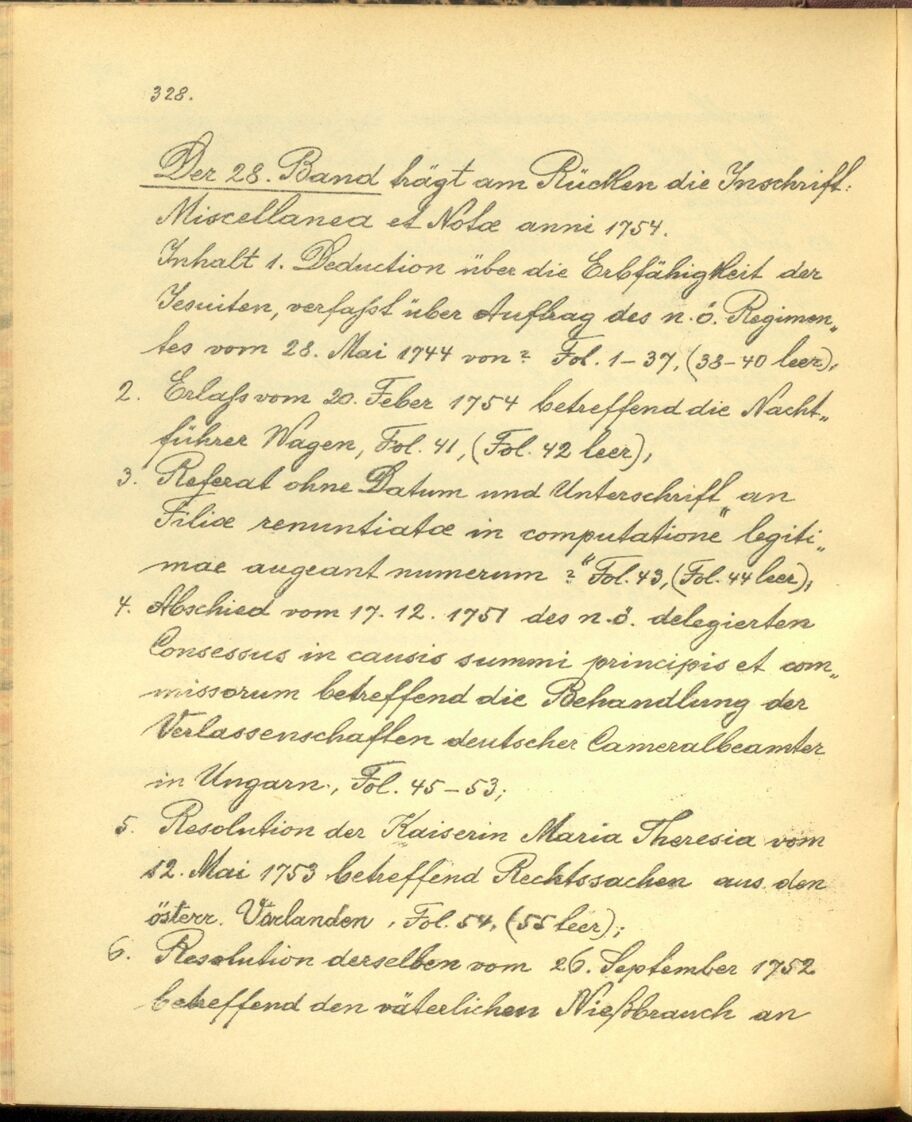 328.
Der 28. Band trägt am Rücken die Inschrift:
Miscellanea et Notæ anni 1754.
Inhalt 1. Deduction über die Erbfähigkeit der
Jesuiten, verfaßt über Auftrag des n.ö. Regimen„
tes vom 28. Mai 1744 von? Fol. 1–37, (38–40 leer),
2. Erlaß vom 20. Feber 1754 betreffend die Nacht„
führer Wagen, Fol. 41, (Fol. 42 leer),
3. Referat ohne Datum und Unterschrift „an
Filiæ renuntiatæ in computatione legiti„
mae augeant numerum ?“ Fol. 43, (Fol. 44 leer),
4. Abschied vom 17. 12. 1751 des n.ö. delegierten
Consessus in causis summi principis et com„
missorum betreffend die Behandlung der
Verlassenschaften deutscher Cameralbeamter
in Ungarn, Fol. 45–53;
5. Resolution der Kaiserin Maria Theresia vom
12. Mai 1753 betreffend Rechtssachen aus den
österr. Vorlanden, Fol. 54, (55 leer);
6. Resolution derselben vom 26. September 1752
betreffend den väterlichen Nießbrauch an